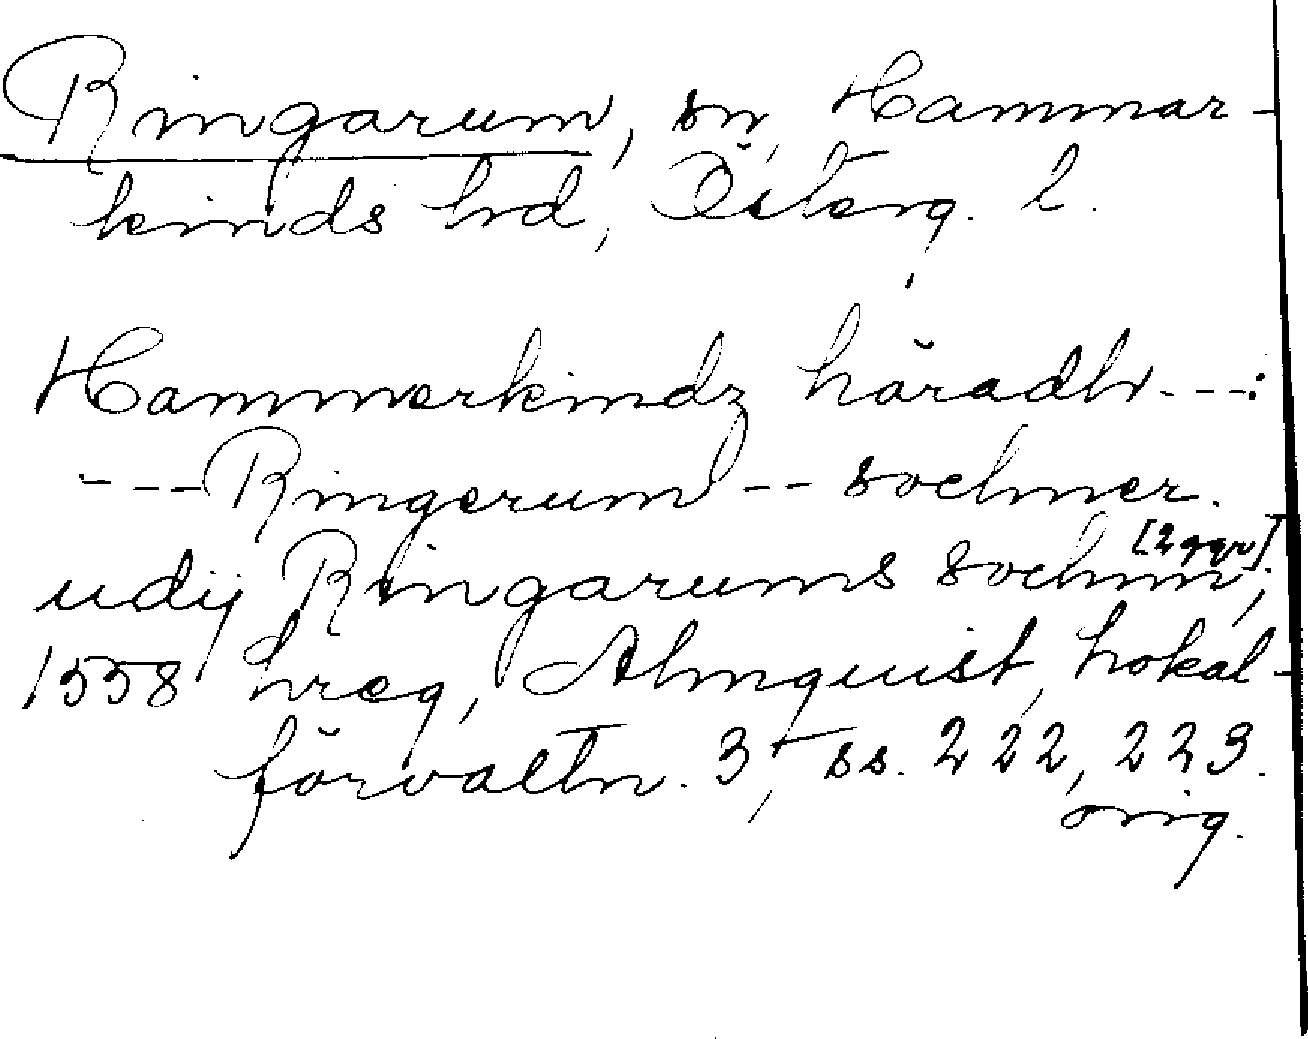 Ringarum, sn, Hammar-
kinds hrd, Österg. l.
Hammerkindz häradh---:
---Ringerum -- sochner.
udij Ringarums sochnn [2 ggr];
1558 hreg, Almquist, Lokal-
förvaltn. 3, ss. 222, 223.
orig.